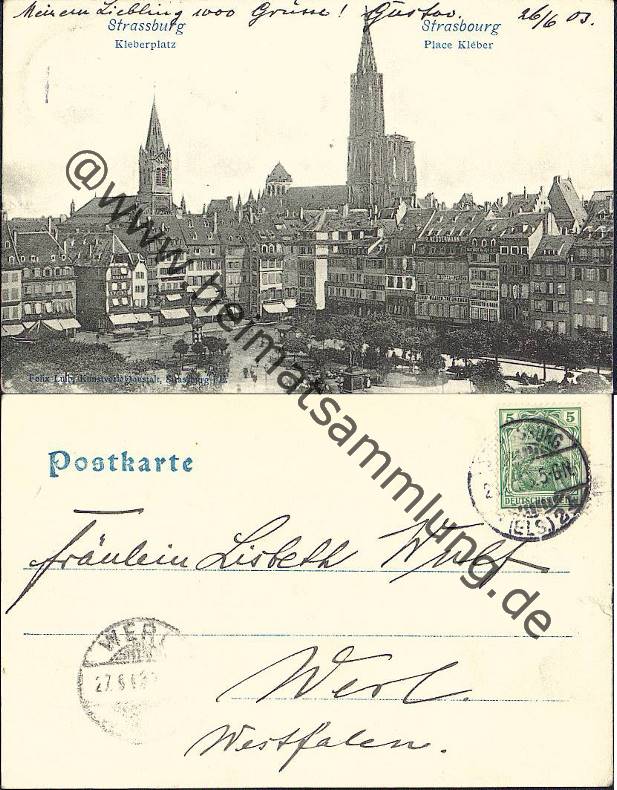 Meinem Liebling 1000 Grüsse! Gustav. 26/6 03.
Strassburg
Kleberplatz
Strasbourg
Place Kléber
Felix Luib, Kunstverlagsanstalt, Strassburg i/E.
@www.heimatsammlung.de
Postkarte
5 5
DEUTSCHES
5-6N.
(ELS.) 2
Fräulein Lisbeth Wulf
WERL
27.6
Werl.
Westfalen.